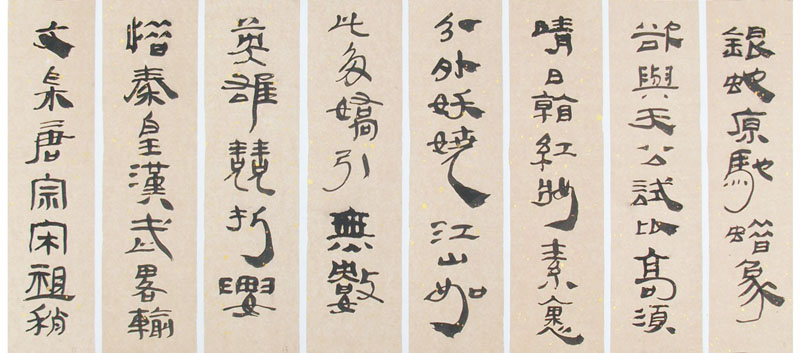 銀蛇原馳蠟象
欲與天公試比高須
晴日看紅妝素裹
分外妖嬈江山如
此多嬌引無數
英雄競折腰
惜秦皇漢武畧輸
文采唐宗宋祖稍